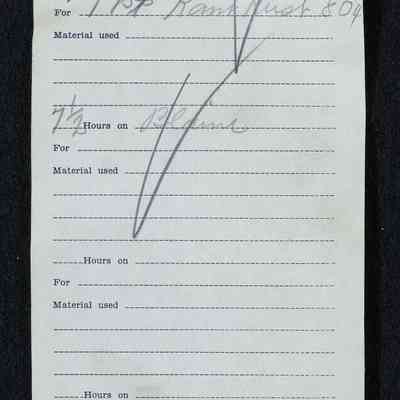 For
Material used
7½ Hours on Blaine
For
Material used
Hours on
For
Material used
Hours on